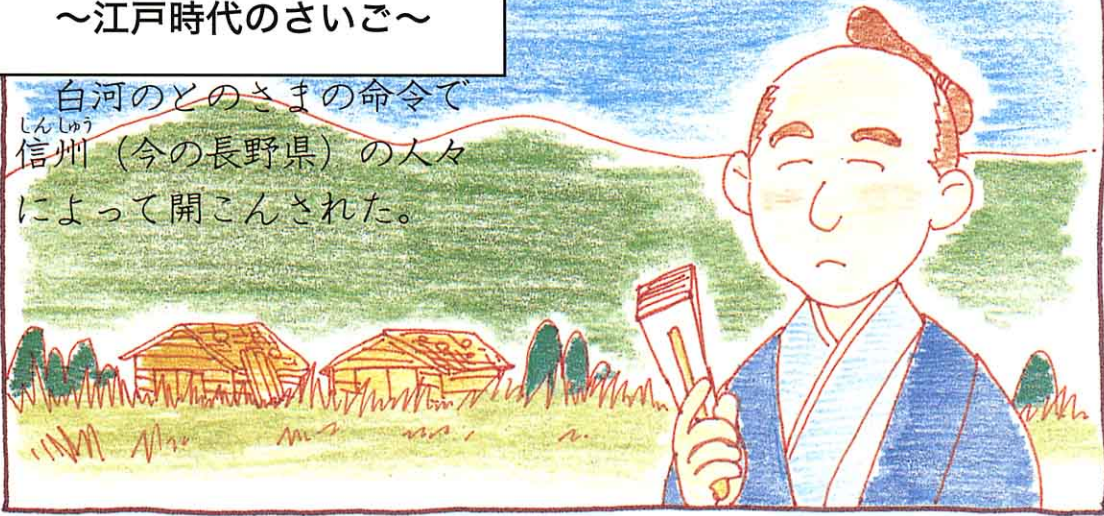 ~江戸時代のさいご~
白河のとのさまの命令で
しんしゅう
信州(今の長野県)の人々
によって開こんされた。